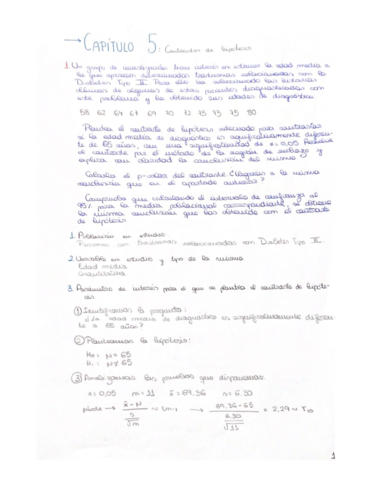 → CAPÍTULO 5: Contrastes de hipótesis
1. Un grupo de investigación tiene interés en estimar la edad media a
la que aparecen determinados trastornos relacionados con la
Diabetes Tipo II. Para ello ha seleccionado las historias
clínicas de algunos de estos pacientes diagnosticados con
este problema y ha obtenido sus edades de diagnóstico
58 62 64 67 69 70 72 75 73 75 80
Plantea el contraste de hipótesis adecuado para contrastar
si la edad media de diagnóstico es significativamente diferen-
te de 65 años, con una significatividad de α = 0,05. Resuelve
el contraste por el método de la región de rechazo y
explica con claridad la conclusión del mismo
Calcula el p-valor del contraste ¿Llegamos a la misma
conclusión que en el apartado anterior?
Comprueba que calculando el intervalo de confianza al
95% para la media poblacional correspondiente, se obtiene
la misma conclusión que has obtenido con el contraste
de hipótesis
1. Población en estudio
Personas con trastornos relacionados con Diabetes Tipo II.
2. Variable en estudio y tipo de la misma
Edad media
Cuantitativa
3. Parámetro de interés para el que se plantea el contraste de hipóte-
sis
① Identificamos la pregunta:
¿La edad media de diagnóstico es significativamente diferen-
te a 65 años?
② Planteamos la hipótesis:
H₀: μ = 65
H₁: μ ≠ 65
③ Analizamos las pruebas que disponemos.
α = 0,05 n = 11 x̄ = 69.36 s = 6.30
→ x̄ - μ / s/√n ~ tn-1 → 69.36 - 65 / 6.30/√11 = 2,29 ~ t10
1